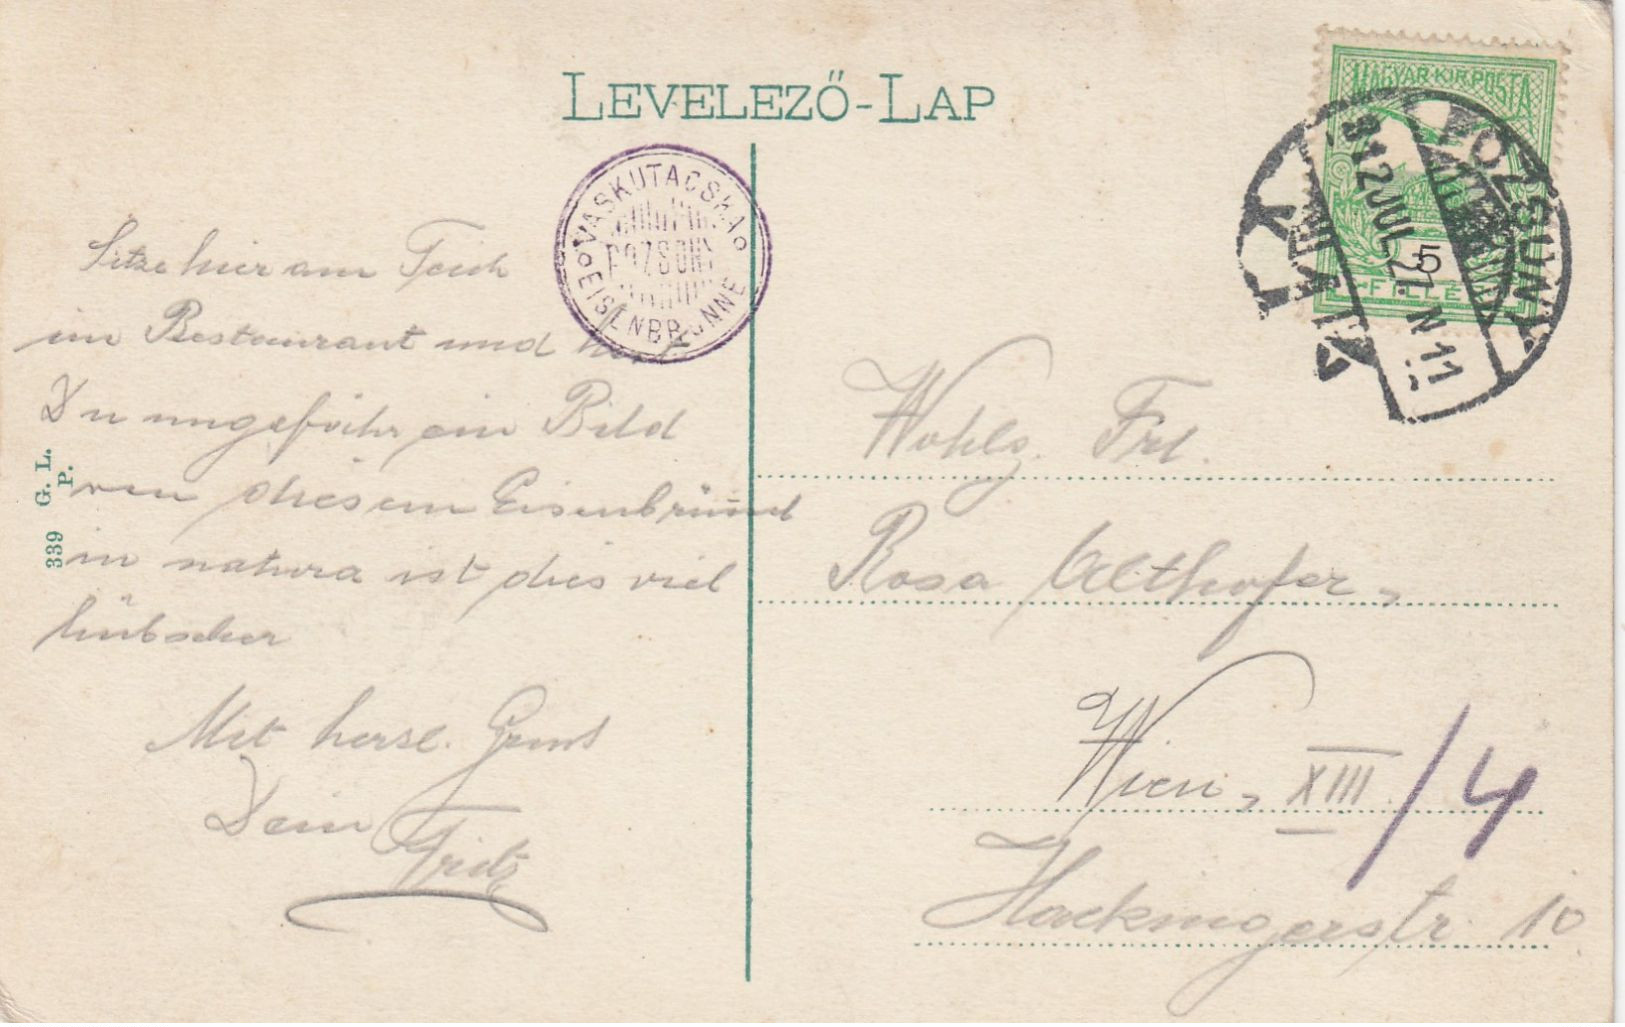 LEVELEZŐ-LAP
MAGYAR KIR. POSTA
5
FILLÉR
POZSONY
912 JUL 21. N 11
VASKUTACSKA
POZSONY
EISENBRÜNNEL
Sitze hier am Teich
im Restaurant und hast
Du ungefähr ein Bild
von diesem Eisenbründl
in natura ist dies viel
hübscher
Mit herzl. Gruß
Dein
Fritz
339 G. L. P.
Wohlg. Frl.
Rosa Althofer,
Wien, XIII/4
Hackingerstr. 10